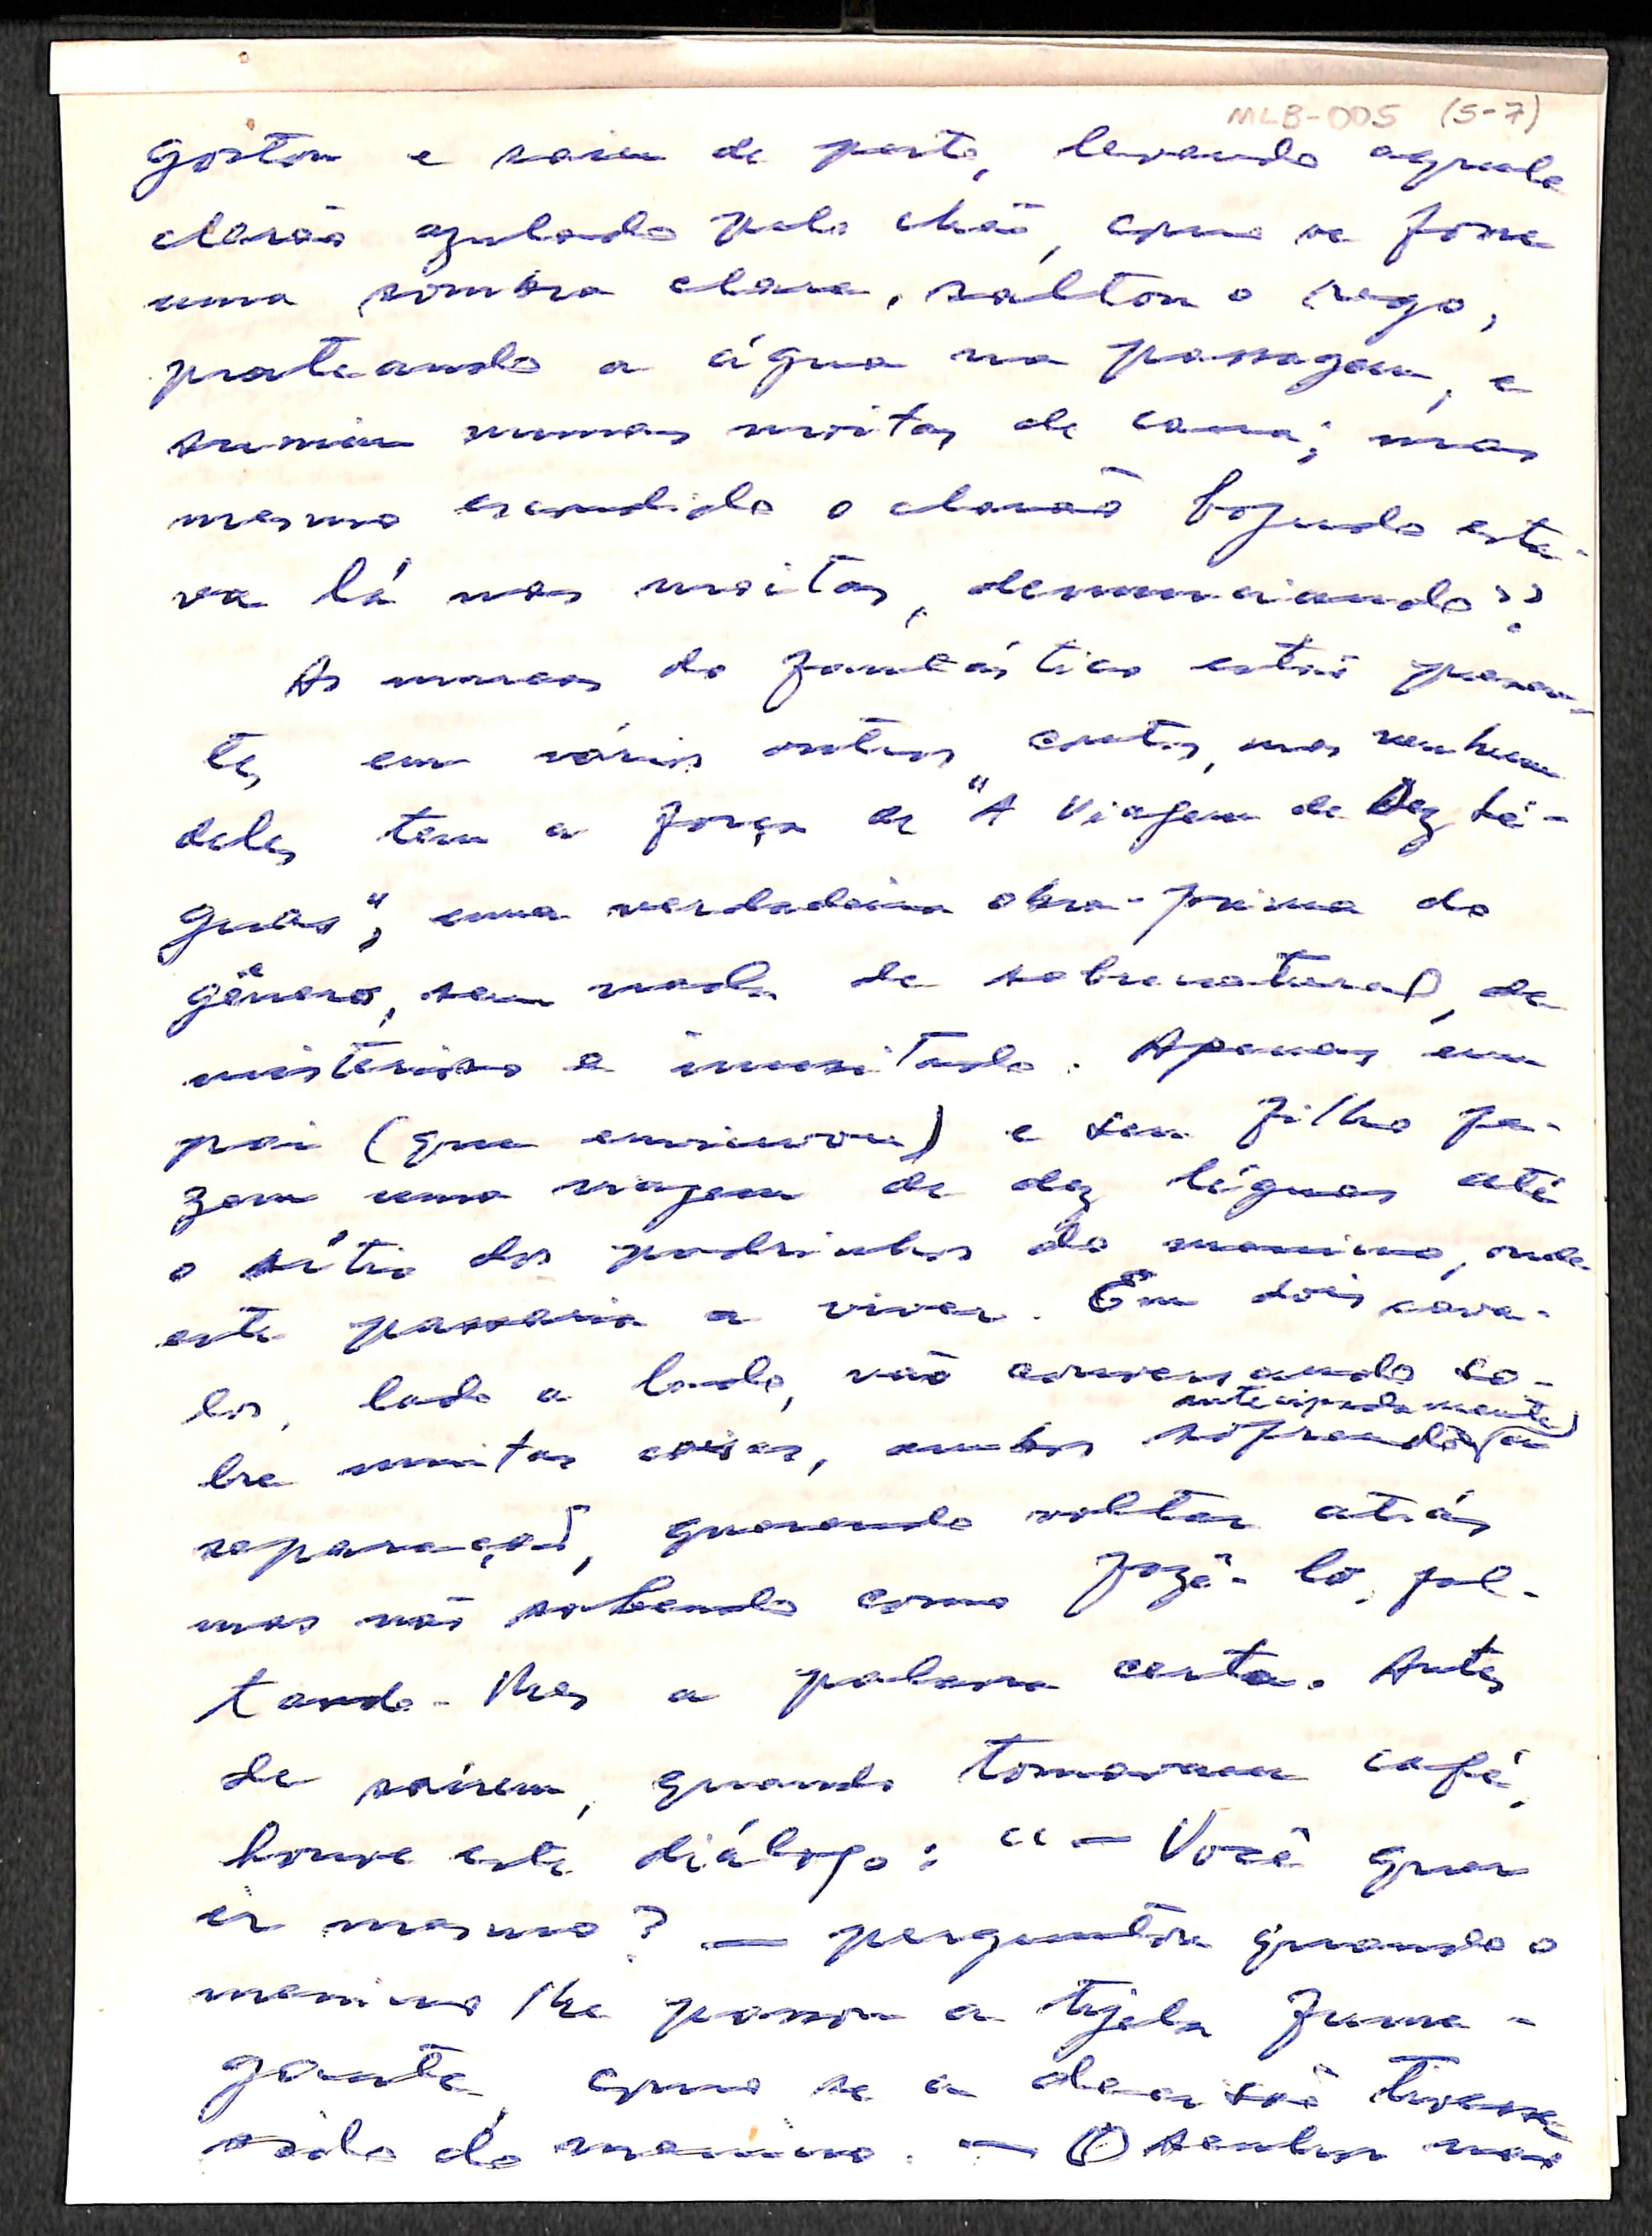 MLB-005 (5-7)
gostou e saiu de perto, levando aquele
clarão azulado pelo chão, como se fosse
uma sombra clara, saltou o rego,
prateando a água na passagem, e
sumiu numas moitas de cana; mas
mesmo escondido o clarão bojudo esta-
va lá nas moitas, denunciando".
As marcas do fantástico estão presen-
tes em vários outros contos, mas nenhum
deles tem a força de "A Viagem de Dez Lé-
guas", uma verdadeira obra-prima do
gênero, sem nada de sobrenatural, de
misterioso e inusitado. Apenas um
pai (que enviuvou) e seu filho fa-
zem uma viagem de dez léguas até
o sítio dos padrinhos do menino, onde
este passaria a viver. Em dois cava-
los, lado a lado, vão conversando so-
antecipadamente
bre muitas coisas, ambos sofrendo a
separação, querendo voltar atrás
mas não sabendo como fazê-lo, fal-
tando-lhes a palavra certa. Antes
de saírem, quando tomavam café,
houve este diálogo: "— Você quer
ir mesmo? — perguntou quando o
menino lhe passou a tijela fume-
gante, como se a decisão tivesse
sido do menino. — O senhor não